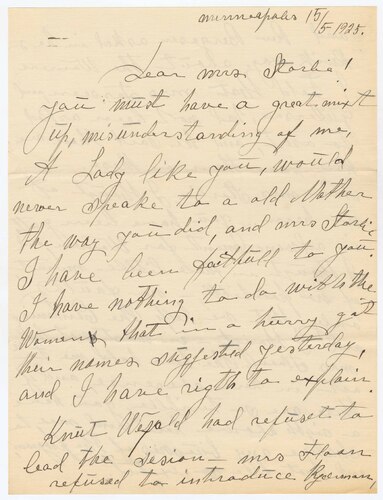 Minneapolis 15/
/5-1925.
Dear Mrs Storlie!
you must have a great mixt
up, misunderstanding of me,
A Lady like you, would
never speake to a old Mother
the way you did, and Mrs Storlie
I have been faithfull to you.
I have nothing to do with the
Womens that in a hurry got
their names suggested yesterday,
and I have rigth to explain.
Knut had refuset to
lead the sision - Mrs
refused to introduce